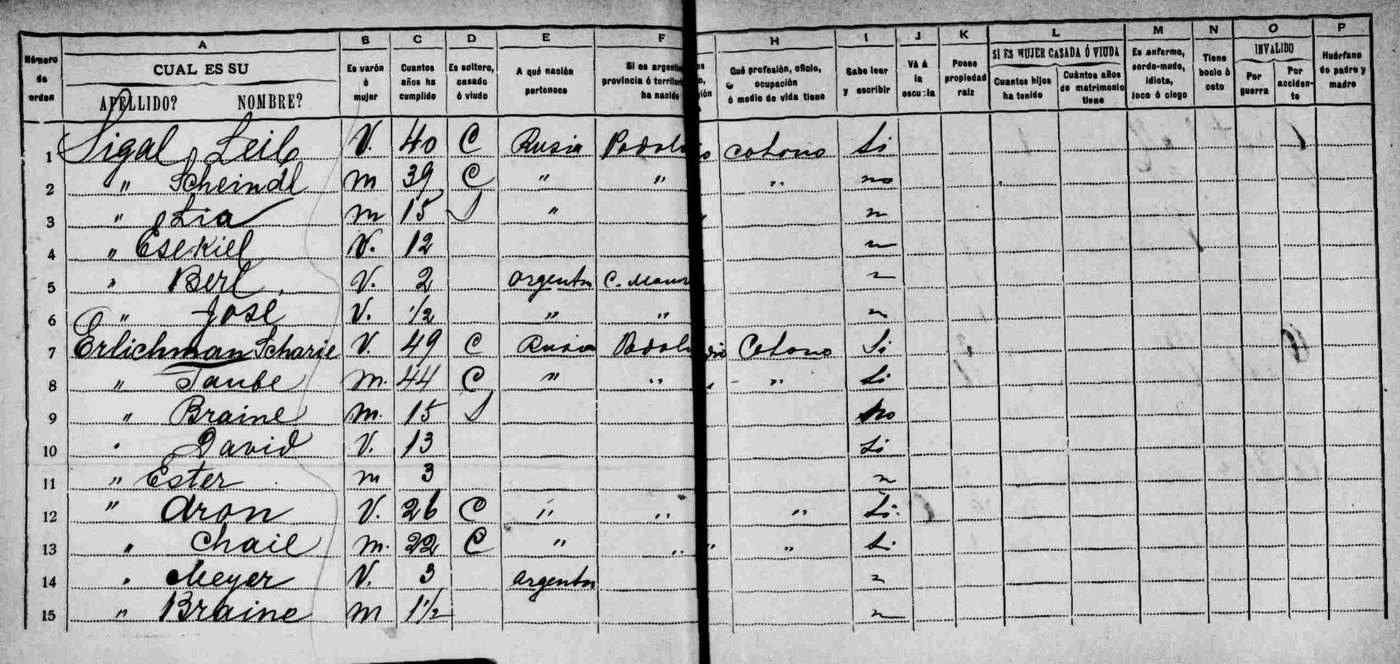 A B C D E F H I J K L M N O P
Número de orden CUAL ES SU APELLIDO? NOMBRE? Es varón ó mujer Cuantos años ha cumplido Es soltero, casado ó viudo A qué nación pertenece Si es argen provincia ó territ ha nacido Qué profesión, oficio, ocupación ó medio de vida tiene Sabe leer y escribir Vá á la escuela Posee propiedad raiz SI ES MUJER CASADA Ó VIUDA Cuantos hijos ha tenido Cuántos años de matrimonio tiene Es enfermo, sordo-mudo, idiota, loco ó ciego Tiene bocio ó coto INVALIDO Por guerra Por accidente Huérfano de padre y madre
1 Sigal Leib V. 40 C Rusia Podol colono Si
2 " Scheindl m 39 C " " " no
3 " Lia m 15 S " "
4 " Esekiel V. 12 "
5 " Berl V. 2 Argentin C. Maur "
6 " José V. 1/2 " " "
7 Erlichman Scharie V. 49 C Rusia Podol Colono Si
8 " Taube m. 44 C " " " Si
9 " Braine m. 15 S no
10 " David V. 13 Si
11 " Ester m 3 "
12 " Aron V. 26 C " " " Si
13 " Chaie m. 22 C " " " Si
14 " Meyer V. 3 Argentin "
15 " Braine m 1 1/2 "